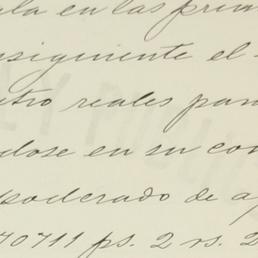 ala en las prim
nsiguiente el
tro reales par
dose en su con
poderado de a
70711 ps. 2 rs. 2